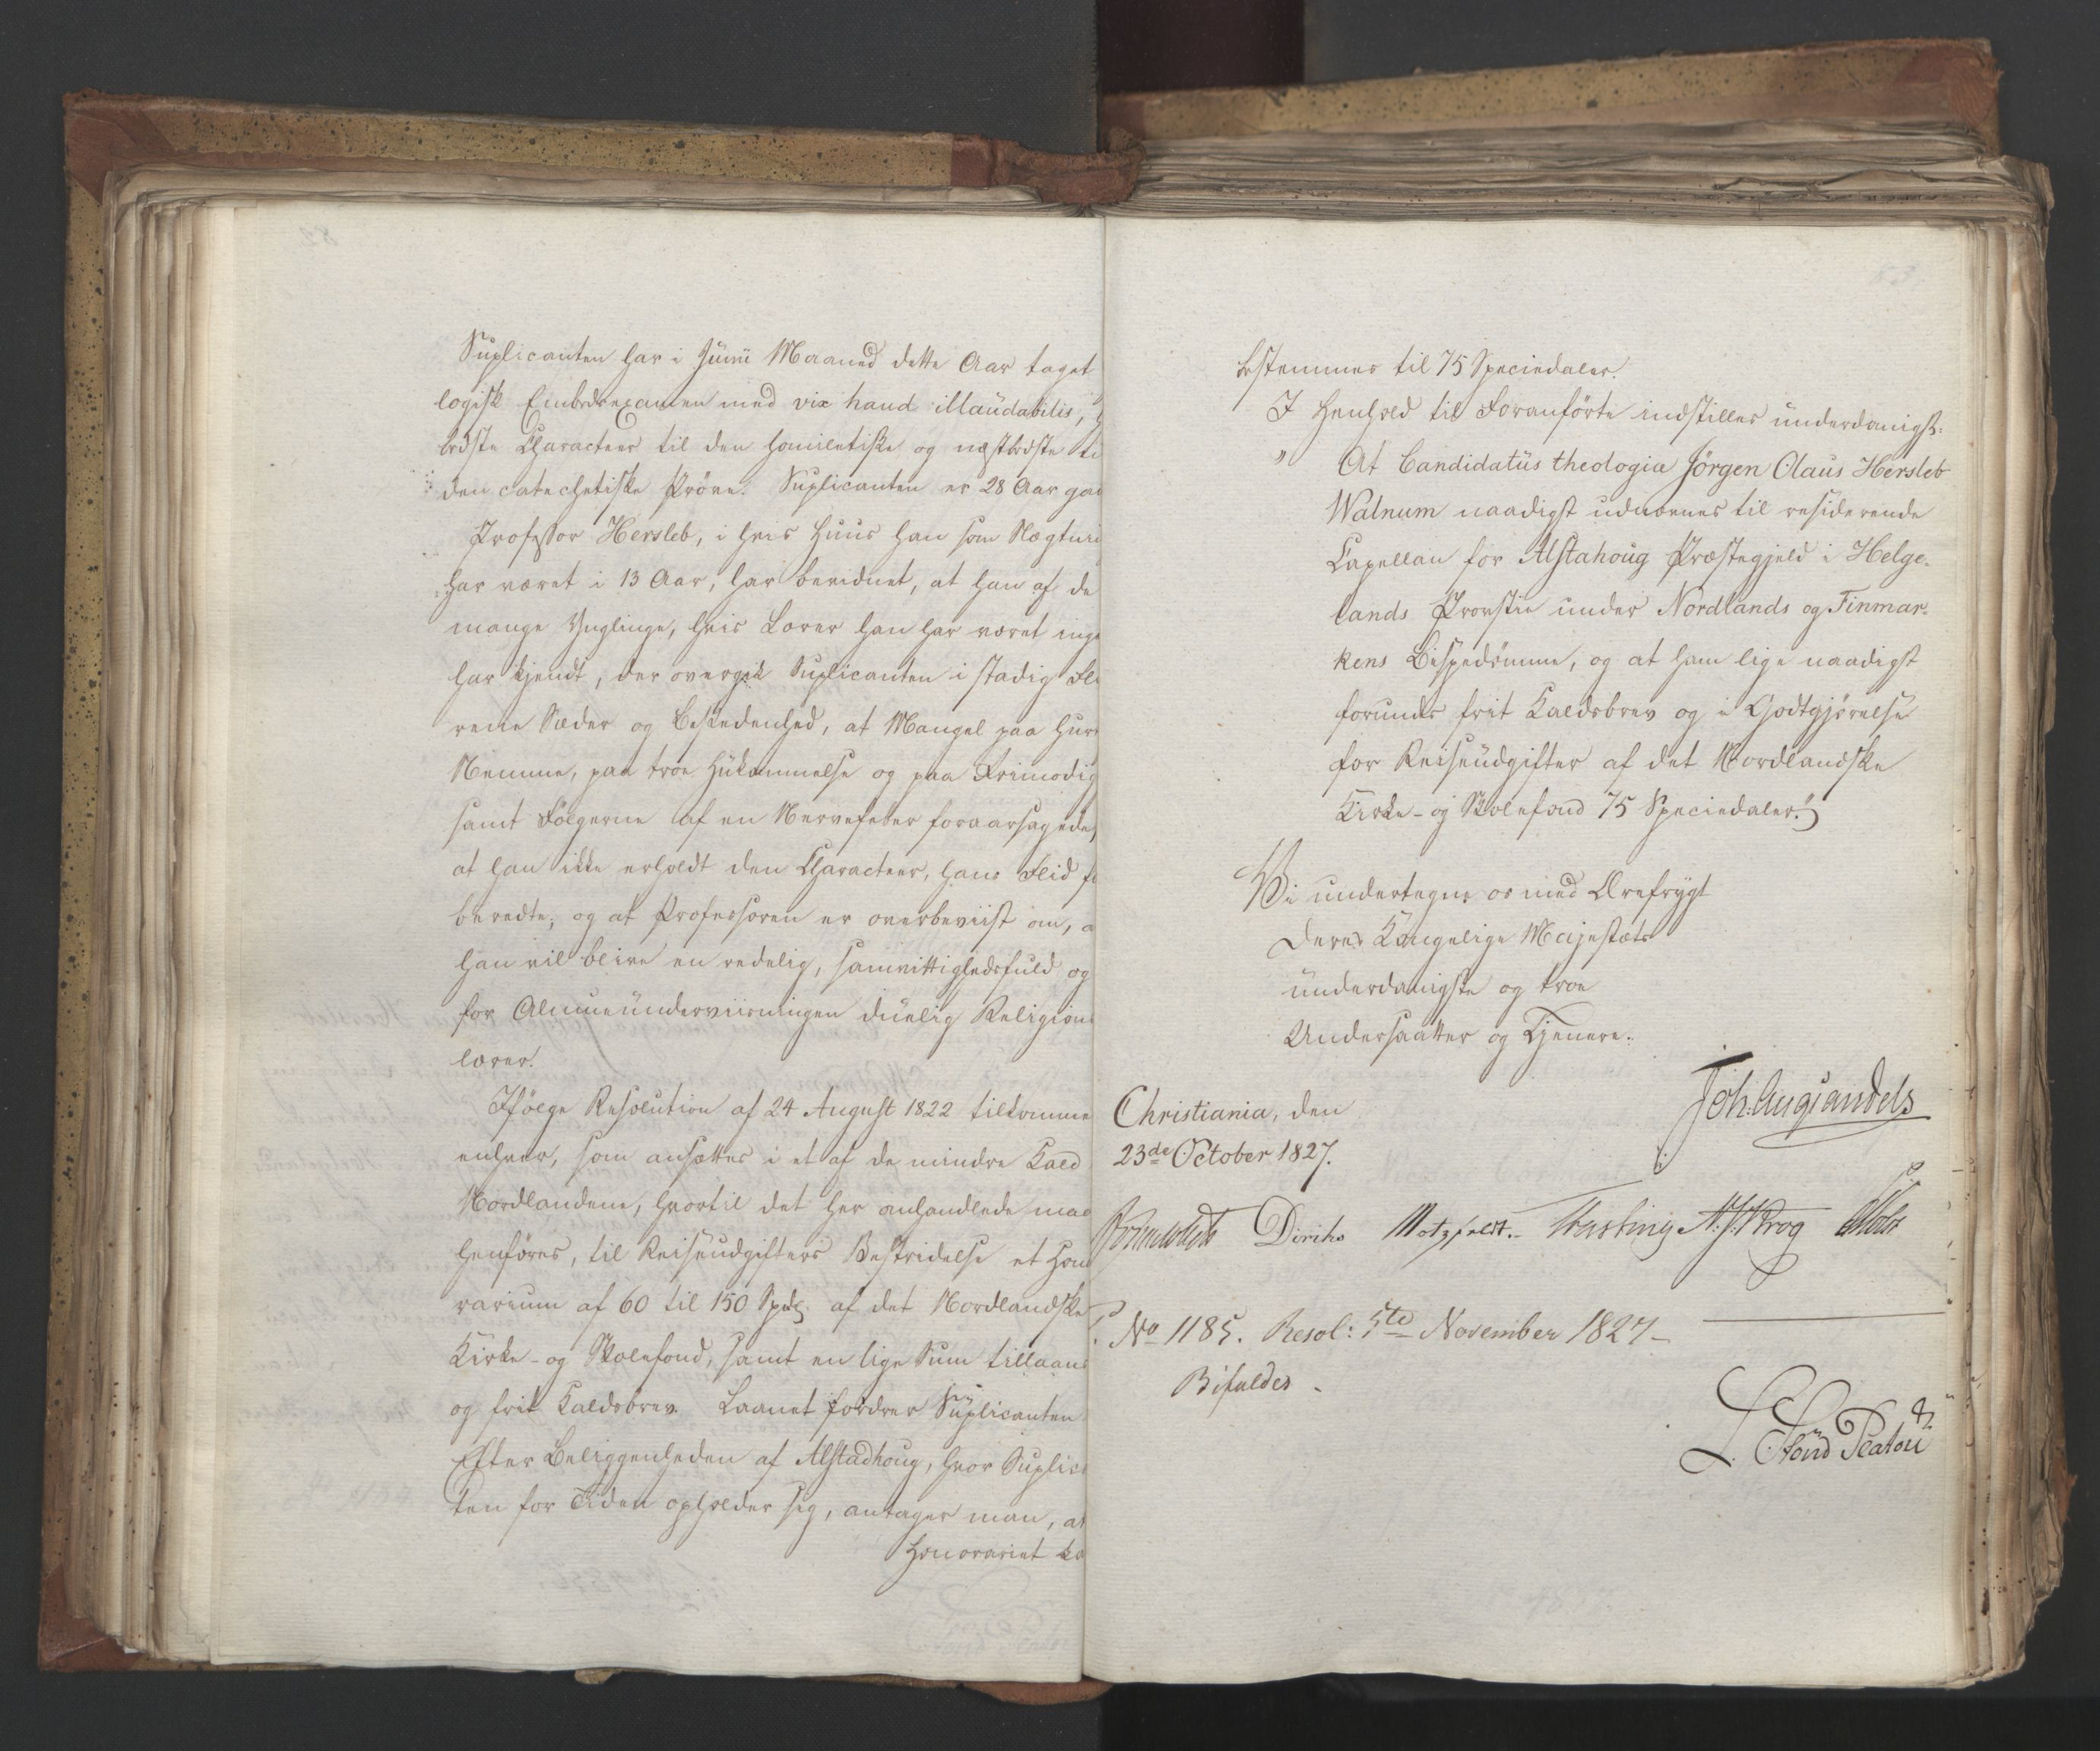 Suplicanten har i Junii Maaned dette Aar taget
logisk Embedsexamen med vix haud illaudabilis,
bedste Characteer til den homiletiske og næstbedste ti
den catechetiske Prøve. Suplicanten er 28 Aar ga
Professor Hersleb, i hvis Huus han som
har været i 13 Aar, har bevidnet, at han af de
mange Ynglinge, hvis Lærer han har været inge
har kjendt, der overgik Suplicanten i stadig Fli
rene Sæder og Beskedenhed, at Mangel paa hur
Nemme, paa troe Hukommelse og paa Frimodig
samt Følgerne af en Nervefeber foraarsagede,
at han ikke erholdt den Characteer, hans Flid f
beredte, og at Professoren er overbeviist om, a
han vil blive en redelig, samvittighedsfuld og
for Almueunderviisningen duelig Religions
lærer.
Ifølge Resolution af 24 August 1822 tilkomme
enhver, som ansættes i et af de mindre Kald
Nordlandene, hvortil det her omhandlede maa
henføres, til Reiseudgifters Bestridelse et Hono
rarium af 60 til 150 Spd. af det Nordlandske
Kirke- og Skolefond, samt en lige Sum tillaans
og frit Kaldsbrev. Laanet fordrer Suplicanten
Efter Beliggenheden af Alstadhoug, hvor Suplica
ten for Tiden opholder sig, antager man, at
Honorariet ka
bestemmes til 75 Speciedaler.
I Henhold til Foranførte indstilles underdanigst:
" At Candidatus theologiæ Jørgen Olaus Hersleb
Walnum naadigst udnævnes til residerende
Capellan for Alstahoug Præstegjeld i Helge-
lands Provstie under Nordlands og Finmar-
kens Bispedømme, og at ham lige naadigst
forundes frit Kaldsbrev og i Godtgjørelse
for Reiseudgifter af det Nordlandske
Kirke- og Skolefond 75 Speciedaler."
Vi undertegne os med Ærefrygt
Deres Kongelige Majestæts
underdanigste og troe
Undersaatter og Tjenere.
Joh. Aug. Sandels
Christiania, den
23de October 1827.
Diriks Motzfeldt. Fasting N. J. Krog Holst
No 1185. Resol: 5te November 1827 -
Bifaldes.
L. Stoud Platou